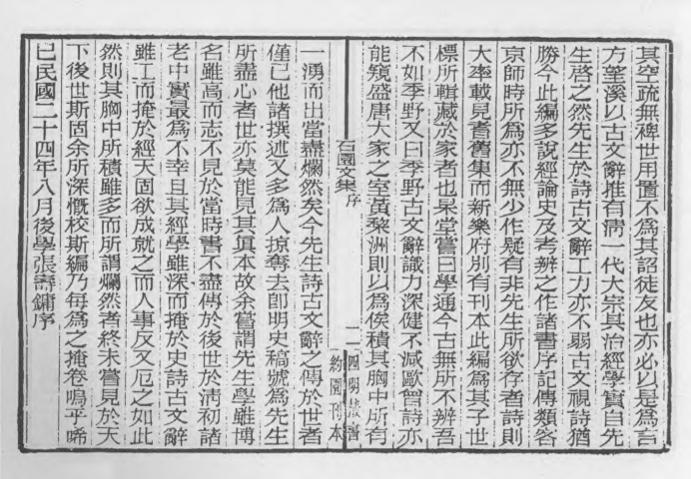 其空疏無裨世用置不爲其詔徒友也亦必以是爲言
方望溪以古文辭推有淸一代大宗其治經學實自先
生啓之然先生於詩古文辭工力亦不弱古文視詩猶
勝今此編多說經論史及考辨之作諸書序記傳類咨
京師時所爲亦不無少作疑有非先生所欲存者詩則
大率載見耆舊集而新樂府別有刊本此編爲其子世
標所輯藏於家者也杲堂嘗曰學通今古無所不辨吾
不如季野又曰季野古文辭識力深健不減歐曾詩亦
能窺盛唐大家之室黃黎洲則以爲俟積其胸中所有
石園文集 序
二 四明叢書
約園刊本
一湧而出當盡爛然矣今先生詩古文辭之傳於世者
僅已他諸撰述又多爲人掠奪去卽明史稿號爲先生
所盡心者世亦莫能見其眞本故余嘗謂先生學雖博
名雖高而志不見於當時書不盡傳於後世於淸初諸
老中實最爲不幸且其經學雖深而掩於史詩古文辭
雖工而掩於經天固欲成就之而人事反又厄之如此
然則其胸中所積雖多而所謂爛然者終未嘗見於天
下後世斯固余所深慨校斯編乃每爲之掩卷嗚乎唏
已民國二十四年八月後學張壽鏞序